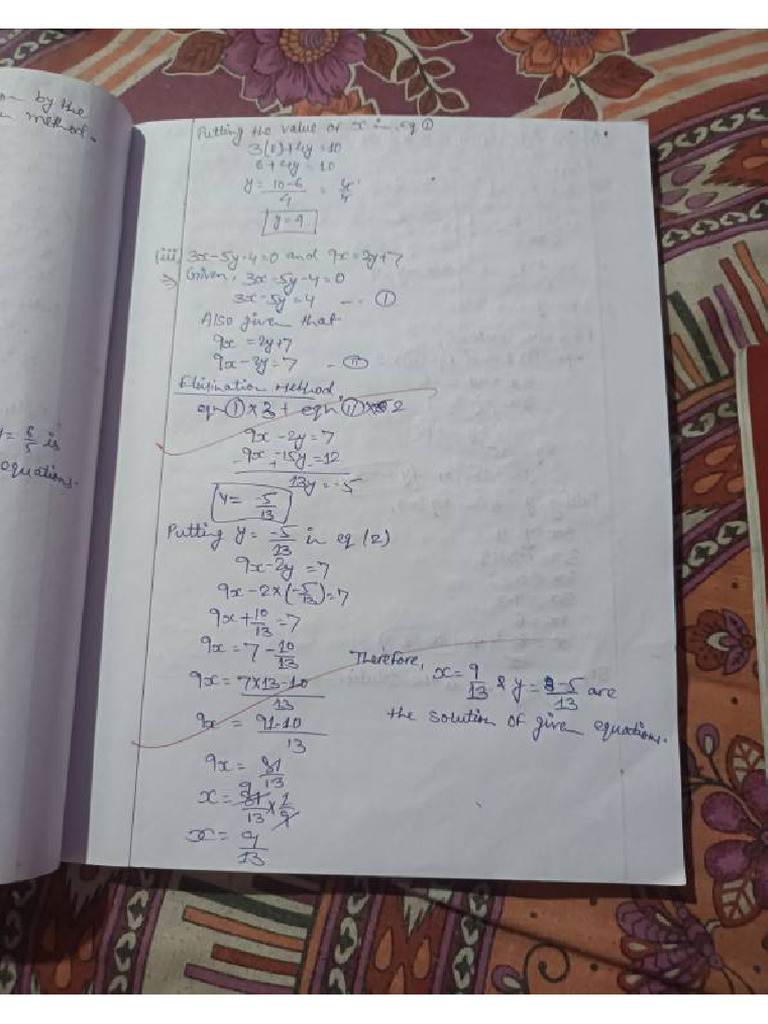 by the
method.
Putting the value of x in eq ①
3(2)+4y=10
6+4y=10
y=10-6/4 = 4/4
(iii) 3x-5y-4=0 and 9x=2y+7
=> Given, 3x-5y-4=0
3x-5y=4 -- ①
Also given that
9x=2y+7
9x-2y=7 - ⑪
Elimination method
eqn ① × 3 + eqn ⑪
9x-2y=7
9x-15y=12
13y=-5
y= -5/13
y= 8/5 is
equations.
Putting y= -5/13 in eq (2)
9x-2y=7
9x-2×(-5/13)=7
9x+10/13=7
9x=7-10/13
9x=7×13-10/13
9x=91-10/13
9x=81/13
x=81/13×1/9
x=9/13
Therefore, x=9/13 & y=-5/13 are
the solution of given equations.